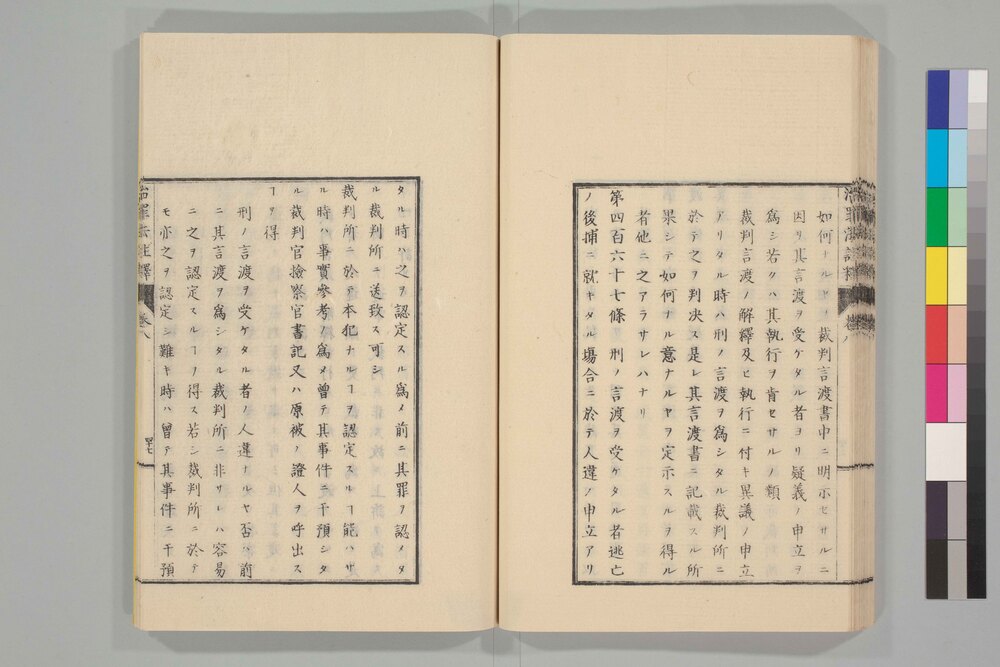 如何ナルヒヲ裁判言渡書中ニ明示セサルニ
因リ其言渡ヲ受ケタル者ヨリ疑義ノ申立ヲ
爲シ若クハ其執行ヲ肯セサルノ類
裁判言渡ノ解釋及ヒ執行ニ付キ異議ノ申立
アリタル時ハ刑ノ言渡ヲ爲シタル裁判所ニ
於テ之ヲ判决ス是レ其言渡書ニ記載スル所
果シテ如何ナル意ナルヤヲ定示スルヲ得ル
者他ニ之アラサレハナリ
第四百六十七條 刑ノ言渡ヲ受ケタル者逃亡
ノ後捕ニ就キタル塲合ニ於テ人違ノ申立アリ
タル時ハ之ヲ認定スル爲メ前ニ其罪ヲ認メタ
ル裁判所ニ送致ス可シ
裁判所ニ於テ本犯ナルヿヲ認定スルヿ能ハサ
ル時ハ事實參考ノ爲メ曾テ其事件ニ干預シタ
ル裁判官撿察官書記又ハ原被ノ證人ヲ呼出ス
ヿヲ得
刑ノ言渡ヲ受ケタル者ノ人違ナルヤ否ハ前
ニ其言渡ヲ爲シタル裁判所ニ非サレハ容易
ニ之ヲ認定スルヿノ得ス若シ裁判所ニ於テ
モ亦之ヲ認定シ難キ時ハ曾テ其事件ニ干預
治罪法註釋 卷八